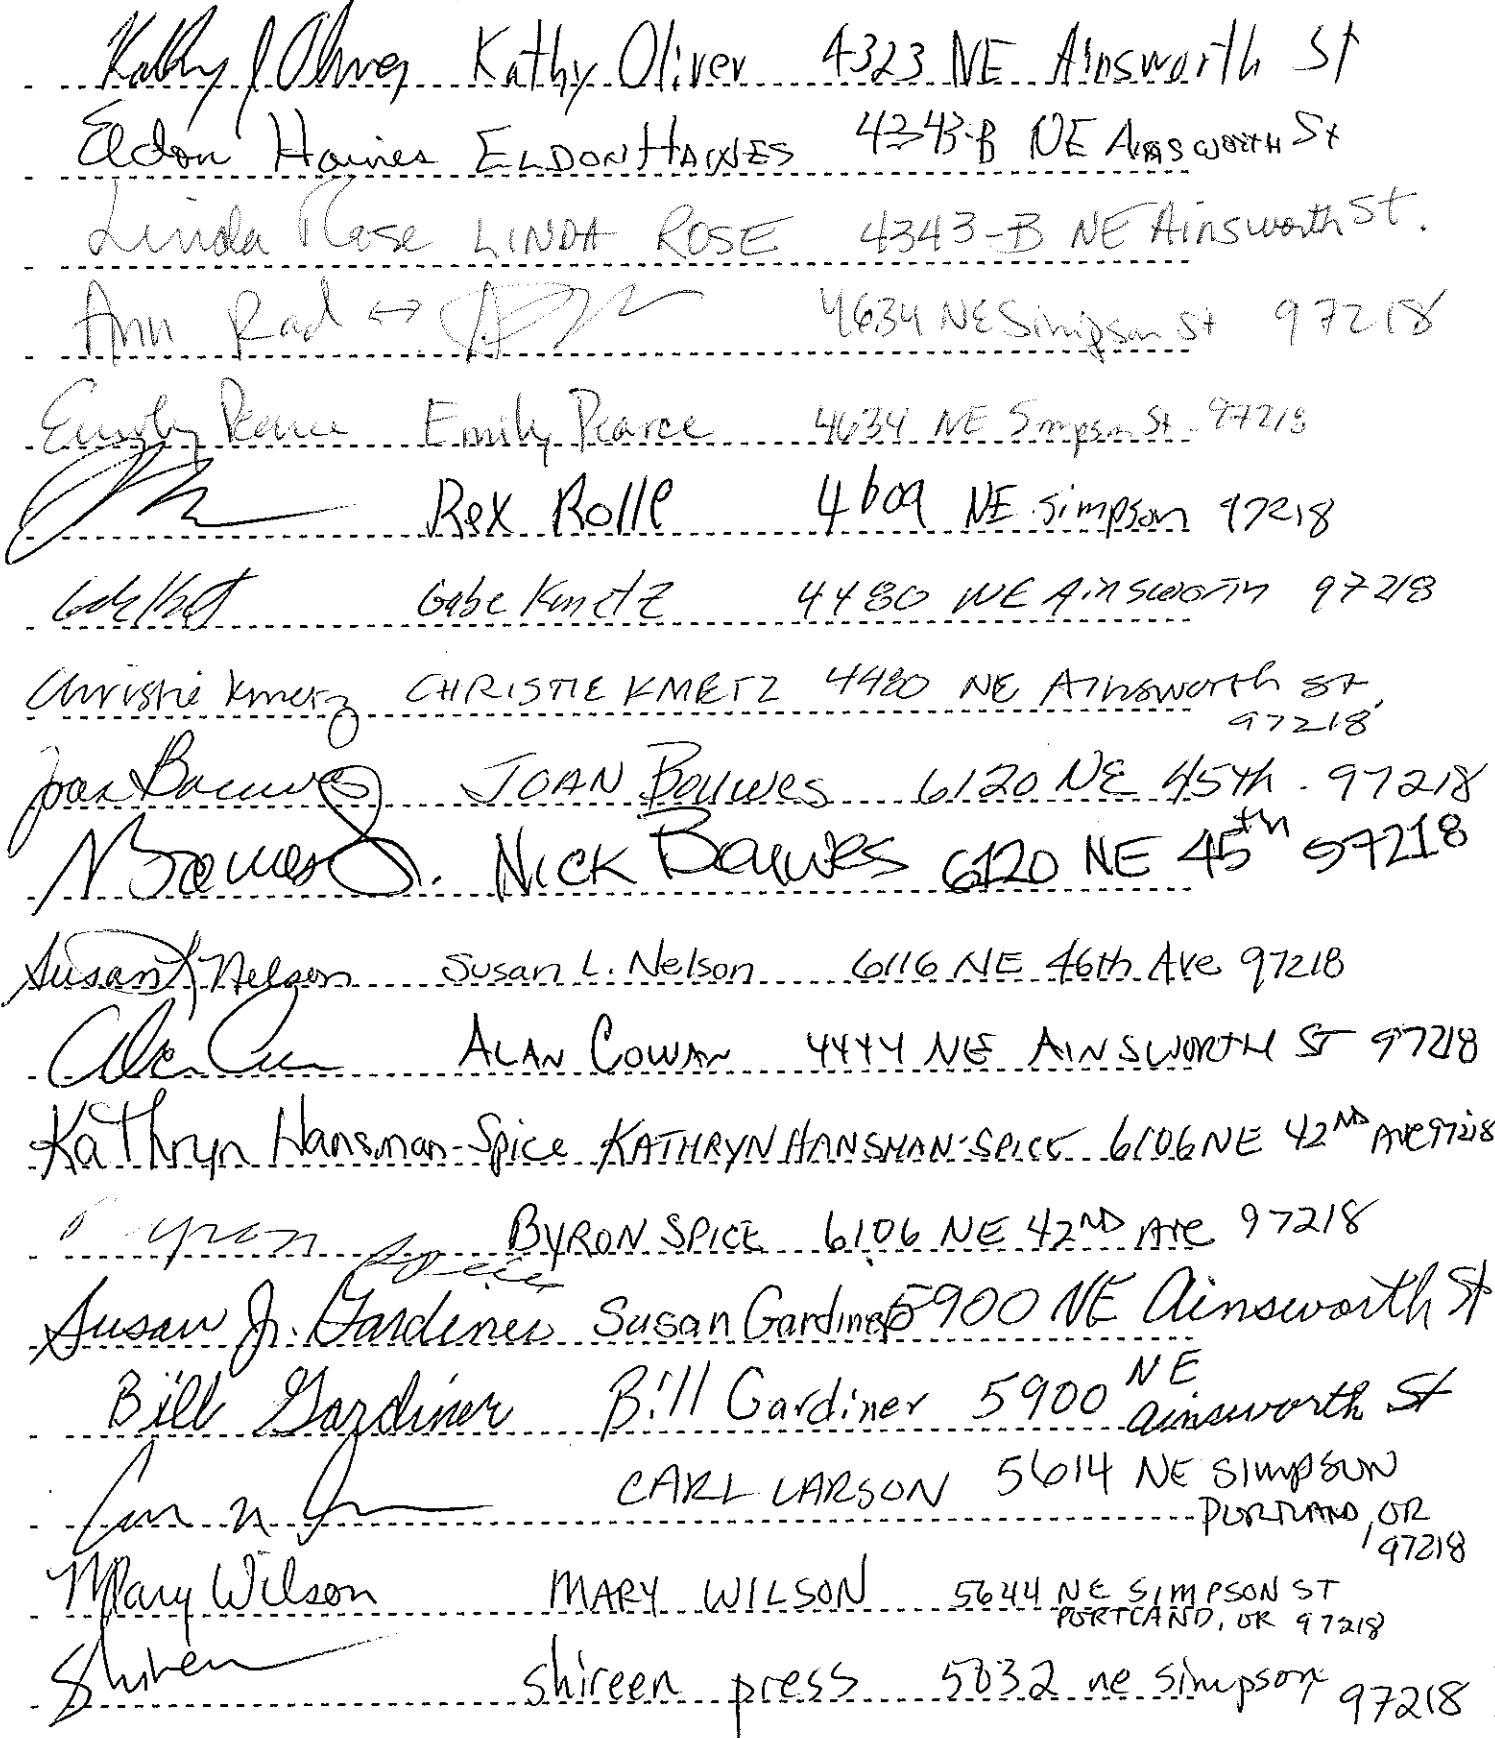 Kathy J Oliver Kathy Oliver 4323 NE Ainsworth St
Eldon Haines ELDON HAINES 4343-B NE AINSWORTH St
Linda Rose LINDA ROSE 4343-B NE Ainsworth St.
Ann Rad ↔ 4634 NE Simpson St 97218
Emily Pearce Emily Pearce 4634 NE Simpson St 97218
Rex Rolle 4609 NE Simpson 97218
Gabe Kmetz 4480 NE Ainsworth 97218
Christie Kmetz CHRISTIE KMETZ 4480 NE Ainsworth St,
97218
Joan Bouwes JOAN Bouwes 6120 NE 45th. 97218
N Bouwes Jr. NICK Bouwes 6120 NE 45th 97218
Susan L Nelson Susan L. Nelson 6116 NE 46th Ave 97218
Alan Cowan ALAN COWAN 4444 NE AINSWORTH ST 97218
Kathryn Hansman-Spice KATHRYN HANSMAN-SPICE 6106 NE 42ND AVE 97218
Byron Spice BYRON SPICE 6106 NE 42ND Ave 97218
Susan Jr. Gardiner Susan Gardiner 5900 NE Ainsworth St
Bill Gardiner Bill Gardiner 5900 NE Ainsworth St
CARL LARSON 5614 NE SIMPSON
PORTLAND, OR
97218
Mary Wilson MARY WILSON 5644 NE SIMPSON ST
PORTLAND, OR 97218
Shireen shireen press 5032 ne simpson 97218